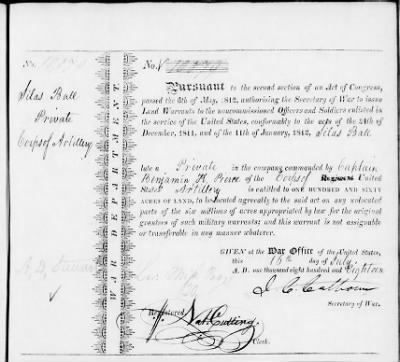 No.
Silas Ball
Private
Corps of Artillery
WAR DEPARTMENT
No.
Pursuant to the second section of an Act of Congress,
passed the 6th of May, 1812, authorising the Secretary of War to issue
Land Warrants to the noncommissioned Officers and Soldiers enlisted in
the service of the United States, conformably to the acts of the 24th of
December, 1811, and of the 11th of January, 1812, Silas Ball
late a Private in the company commanded by Captain
Benjamin K. Pierce of the Corps of Regiment United
States Artillery is entitled to ONE HUNDRED AND SIXTY
ACRES OF LAND, to be located agreeably to the said act on any unlocated
parts of the six millions of acres appropriated by law for the original
grantees of such military warrants; and this warrant is not assignable
or transferable in any manner whatever.
GIVEN at the War Office of the United States,
this day of July
A. D. one thousand eight hundred and Eighteen
J. C. Calhoun
Secretary of War.
Registered
Nat. Cutting
Clerk.